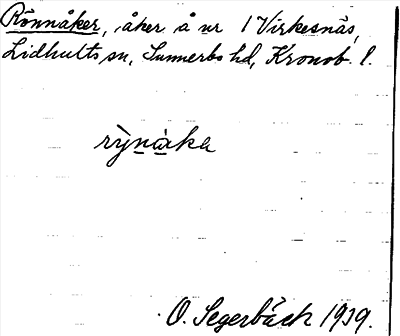 Rönnåker, åker å nr 1 Virkesnäs,
Lidhults sn, Sunnerbo hd, Kronob. l.
rỳnàka
O. Segerbäck 1919.